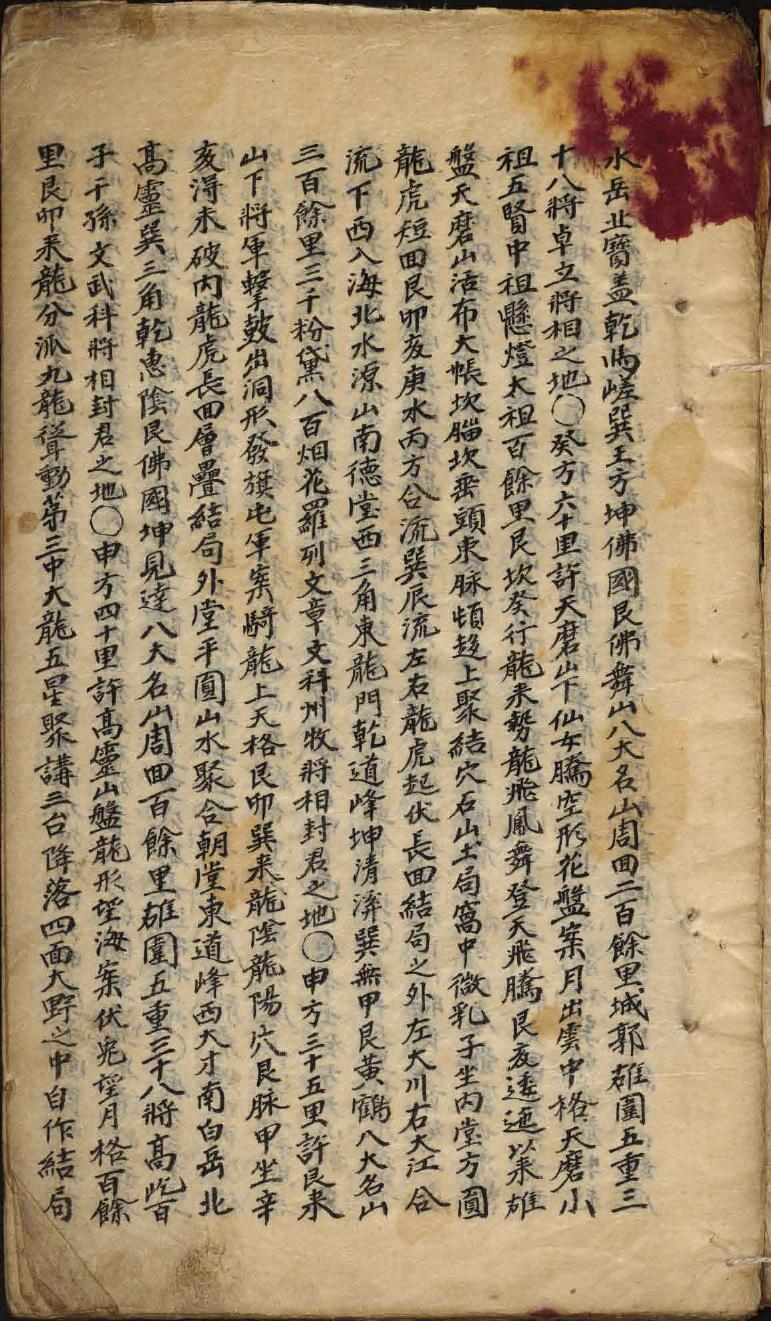 水岳北寶盖乾馬嵯巽王方坤佛國艮佛舞山八大名山周回二百餘里城郭雄圍五重三
十八將卓立將相之地〇癸方六十里許天磨山下仙女騰空形花盤案月出雲中格天磨小
祖五賢中祖懸燈太祖百餘里艮坎癸行龍来勢龍飛鳳舞登天飛騰艮亥逶迤以来雄
盤天磨山活布大帳坎腦坎垂頭東脉頓起上聚結穴石山土局窩中微乳子坐內堂方圓
龍虎短回艮卯亥庚水丙方合流巽辰流左右龍虎起伏長回結局之外左大川右大江合
流下西入海北水源山南德堂西三角東龍門乾道峰坤清溪巽無甲艮黃鶴八大名山
三百餘里三千粉黛八百烟花羅列文章文科州牧將相封君之地〇申方三十五里許艮来
山下將軍擊鼓出洞形發旗屯軍案騎龍上天格艮卯巽来龍陰龍陽穴艮脉甲坐辛
亥淂未破內龍虎長回層疊結局外堂平圓山水聚合朝堂東道峰西大才南白岳北
高靈巽三角乾惠陰艮佛國坤見達八大名山周回百餘里雄圍五重三十八將高屹百
子千孫文武科將相封君之地〇申方四十里許高靈山盤龍形望海案伏兎望月格百餘
里艮卯来龍分派九龍聳動第三中大龍五星聚講三台降落四面大野之中自作結局